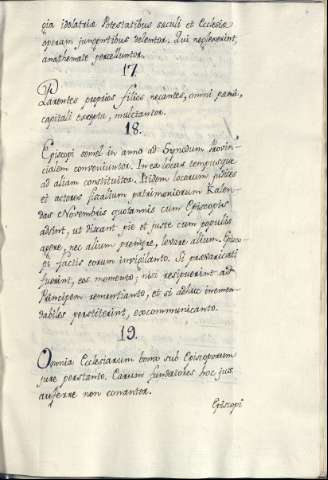 gia idolatriæ Potestatibus seculi et Ecclesiæ
operam jungentibus delentor. Qui neglexerint,
anathemate percelluntor.
17.
Parentes proprios filios necantes, omni pœna,
capitali excepta, mulctantor.
18.
Episcopi semel in anno ad Synodum Provin-
cialem conveniuntor. In ea locus tempusque
ad aliam constituitor. Ibidem locorum judices
et actores fiscalium patrimoniorum Kalen-
das Novembris quotannis cum Episcopis
adsint, ut discant pie et juste cum populis
agere, nec alium premere, levare alium. Episco-
pi factis eorum invigilanto. Si prævaricati
fuerint, eos momento; nisi resipuerint ad
Principem rementianto, et si adhuc inemen-
dabiles perstiterint, excommunicanto.
19.
Omnia Ecclesiarum bona sub Episcoporum
jure perstanto. Earum fundatores hoc jus
auferre non conantor.
Episcopi